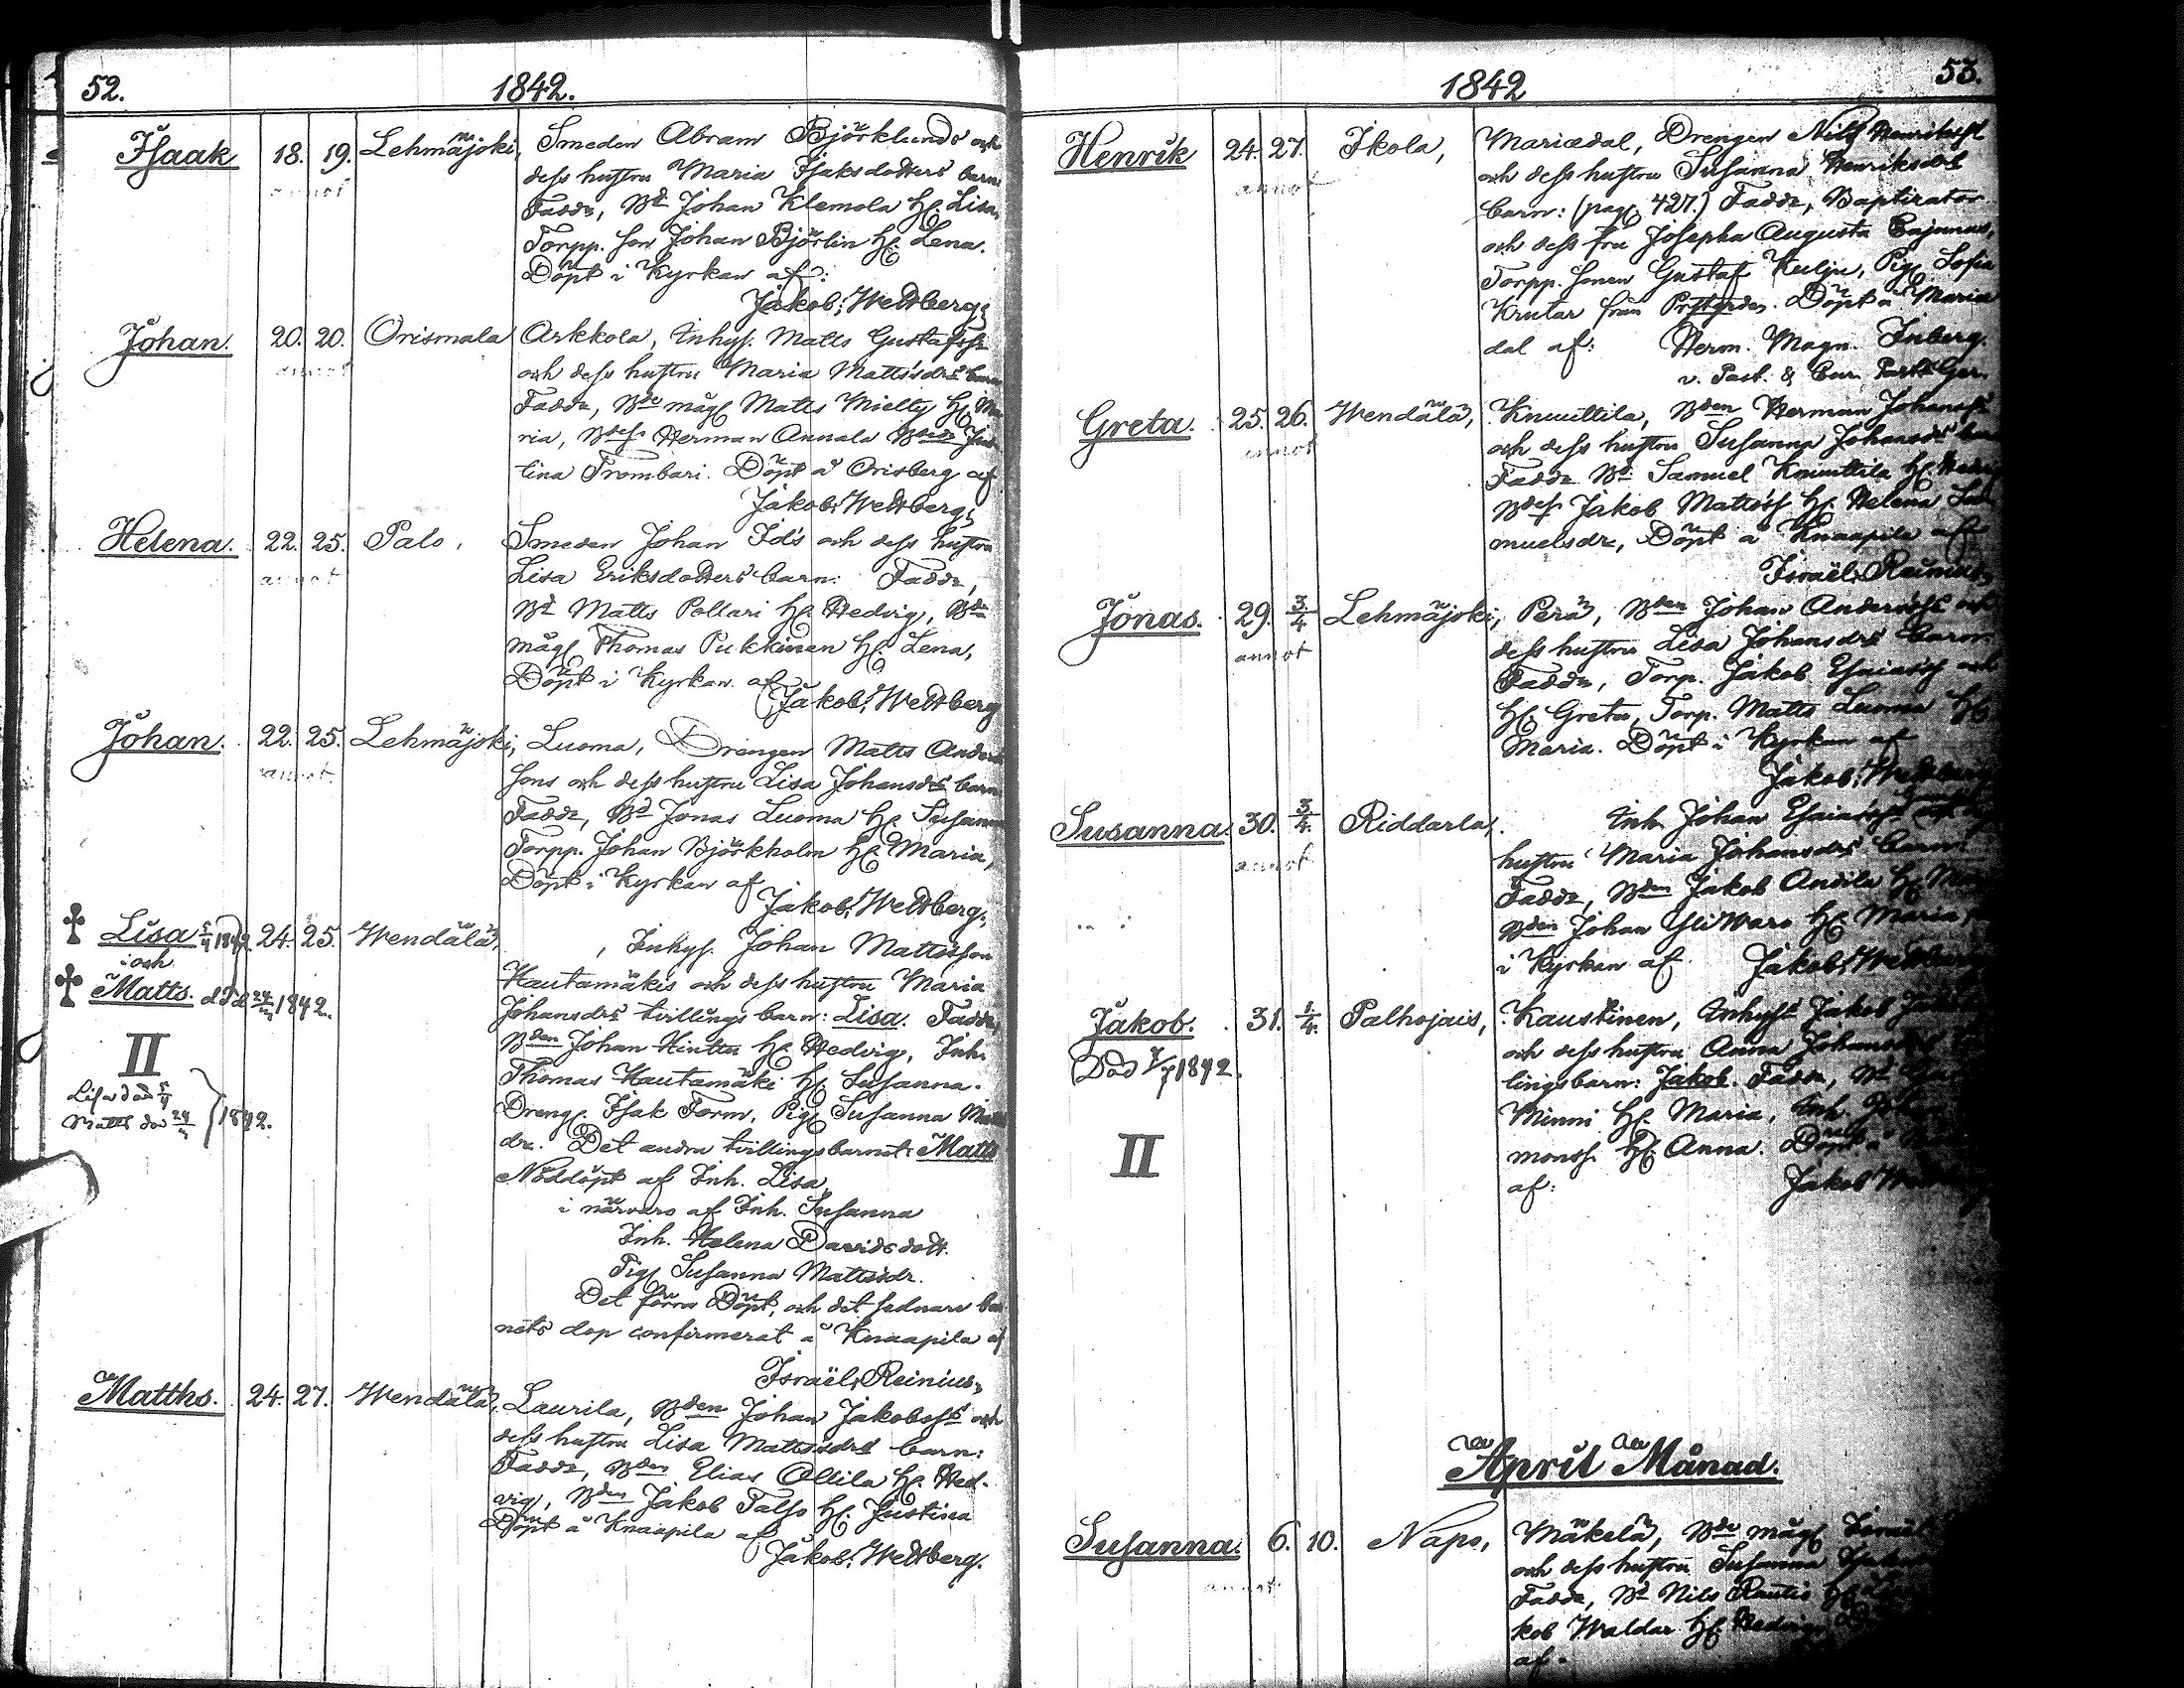 52.
1842.
Isaak 18. 19. Lehmäjoki, Smeden Abram Björklunds och
annot
dess hustru Maria Isaksdotters barn
Fadde, Bd Johan Klemola H. Lisa,
Torpp. son Johan Björlin H. Lena.
Döpt i Kyrkan af:
Jakob Wettberg;
Johan. 20. 20. Orismala Arkkola, Inhys. Matts Gustafss
annot
och dess hustru Maria Mattsdrs barn
Fadde, Bde måg Matts Mielty H. Ma
ria, Bdes. Herman Annala Bdedr Jus
tina Trombari. Döpt å Orisberg af
Jakob Wettberg;
Helena. 22. 25. Palo, Smeden Johan Ids och dess hustru
annot
Lisa Eriksdotters barn: Fadde,
Bd Matts Pollari H. Hedvig, Bde
måg Thomas Pukkinen H. Lena,
Döpt i Kyrkan af
Jakob Wettberg
Johan. 22. 25. Lehmäjoki, Luoma, Drengen Matts Anders
annot
sons och dess hustru Lisa Johansdrs barn
Fadde, Bd Jonas Luoma H. Susanna
Torpp. Johan Björkholm H. Maria,
Döpt i Kyrkan af
Jakob Wettberg;
Lisa 5/4 1842. 24. 25. Wendälä, , Inhys. Johan Mattsson
och
Matts. 1842.
Hautamäkis och dess hustru Maria
Johansdrs tvillings barn: Lisa. Fadde,
II
Bden Johan Hintta H. Hedvig, Inh.
Lisa död 5/4
Matts död 1842.
Thomas Hautamäki H. Susanna.
Dreng. Isak Form, Pig. Susanna Matts
dr. Det andra tvillingsbarnet: Matts
Nöddöpt af Inh. Lisa
i närvaro af Inh. Susanna
Inh. Helena Davidsdott.
Pig. Susanna Mattsdr.
Det förra Döpt, och det sednare bar
nets dop confirmerat å Knaapila af
Israël Reinius
Matths. 24. 27. Wendälä, Laurila, Bden Johan Jakobss och
dess hustru Lisa Mattsdrs barn:
Fadde, Bden Elias Ollila H. Hed-
vig, Bden Jakob Talso H. Justina
Döpt å Knaapila af
Jakob Wettberg.
1842
53.
Henrik 24. 27. Ikola, Mariædal, Drengen Nils Henrikss
annot
och dess hustru Susanna Henriksdrs
barn: (pag. 427.) Fadde, Baptizator
och dess fru Josepha Augusta Cajanus,
Torpp. sonen Gustaf Keulju, Pig. Sofia
Krutar från Prstgrden. Döpt å Maria
dal af: Herm. Magn. Inberg.
v. Past. &
Greta. 25. 26. Wendälä, Knuuttila, Bden Herman Johanss
annot
och dess hustru Susanna Johansdrs
Fadde Bd Samuel Knuuttila H. Hedvig
Bdes. Jakob Mattss H. Helena Sa
muelsdr, Döpt å Knaapila af
Israël
Jonas. 29. 3/4 Lehmäjoki, Perä, Bden Johan Anderss och
annot
dess hustru Lisa Johansdrs barn
Fadde, Torp. Jakob Esaiass och
H. Greta, Torp. Matts Luoma H.
Maria. Döpt i Kyrkan af
Jakob Wettberg
Susanna. 30. 3/4. Riddarla, Inh. Johan Esaiass
annot
hustru Maria Johansdrs barn
Fadde, Bden Jakob Andila H.
Bden Johan Yliwaro H. Maria,
i Kyrkan af Jakob Wettberg
Jakob. 31. 1/4. Palhojais, Kaustinen, Inhyss Jakob
Död 1842.
och dess hustru Anna Johansdrs
lingsbarn: Jakob. Fadde, Bd
Minni H. Maria, Inh.
II
monss. H. Anna. Döpt å
af: Jakob
April Månad.
Susanna. 6. 10. Napo, Mäkelä, Bde måg
annot
och dess hustru Susanna
Fadde, Bd Nils Rautio
kob Waldar H. Hedvig
af